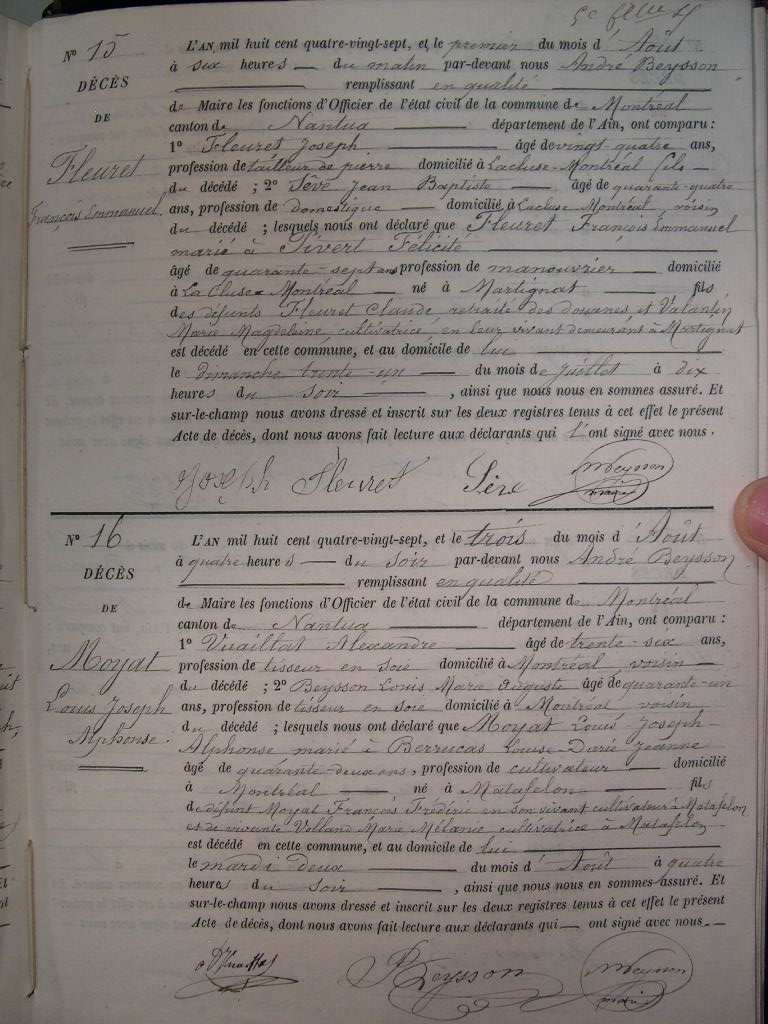 N° 15
DÉCÈS
DE
Fleuret
François Emmanuel.
L'AN mil huit cent quatre-vingt-sept, et le premier du mois d'Août
à six heures du matin par-devant nous André Beysson
remplissant en qualité
de Maire les fonctions d'Officier de l'état civil de la commune de Montréal
canton de Nantua département de l'Ain, ont comparu :
1° Fleuret Joseph âgé de vingt-quatre ans,
profession de tailleur de pierre domicilié à Lacluse-Montréal fils
du décédé ; 2° Sève Jean Baptiste âgé de quarante-quatre
ans, profession de domestique domicilié à Lacluse Montréal, voisin
du décédé ; lesquels nous ont déclaré que Fleuret François Emmanuel
marié à Pivert Félicité
âgé de quarante-sept ans profession de manouvrier domicilié
à La Cluse Montréal né à Martignat fils
des défunts Fleuret Claude, retraité des douanes, et Valentin
Marie Magdeleine, cultivatrice, en leur vivant demeurant à Martignat
est décédé en cette commune, et au domicile de lui
le dimanche trente-un du mois de juillet à dix
heures du soir , ainsi que nous nous en sommes assuré. Et
sur-le-champ nous avons dressé et inscrit sur les deux registres tenus à cet effet le présent
Acte de décès, dont nous avons fait lecture aux déclarants qui l'ont signé avec nous.
Joseph Fleuret Sève Beysson
maire
N° 16
DÉCÈS
DE
Moyat
Louis Joseph
Alphonse.
L'AN mil huit cent quatre-vingt-sept, et le trois du mois d'Août
à quatre heures du soir par-devant nous André Beysson
remplissant en qualité
de Maire les fonctions d'Officier de l'état civil de la commune de Montréal
canton de Nantua département de l'Ain, ont comparu :
1° Vuaillat Alexandre âgé de trente-six ans,
profession de tisseur en soie domicilié à Montréal, voisin
du décédé ; 2° Beysson Louis Marie Auguste âgé de quarante-un
ans, profession de tisseur en soie domicilié à Montréal voisin
du décédé ; lesquels nous ont déclaré que Moyat Louis Joseph
Alphonse marié à Berrucas Louise Jeanne
âgé de quarante-deux ans, profession de cultivateur domicilié
à Montréal né à Matafelon fils
de défunt Moyat François Frédéric en son vivant cultivateur à Matafelon
et de vivante Volland Marie Mélanie cultivatrice à Matafelon
est décédé en cette commune, et au domicile de lui
le mardi deux du mois d'Août à quatre
heures du soir , ainsi que nous nous en sommes assuré. Et
sur-le-champ nous avons dressé et inscrit sur les deux registres tenus à cet effet le présent
Acte de décès, dont nous avons fait lecture aux déclarants qui ont signé avec nous.
Beysson Beysson
maire